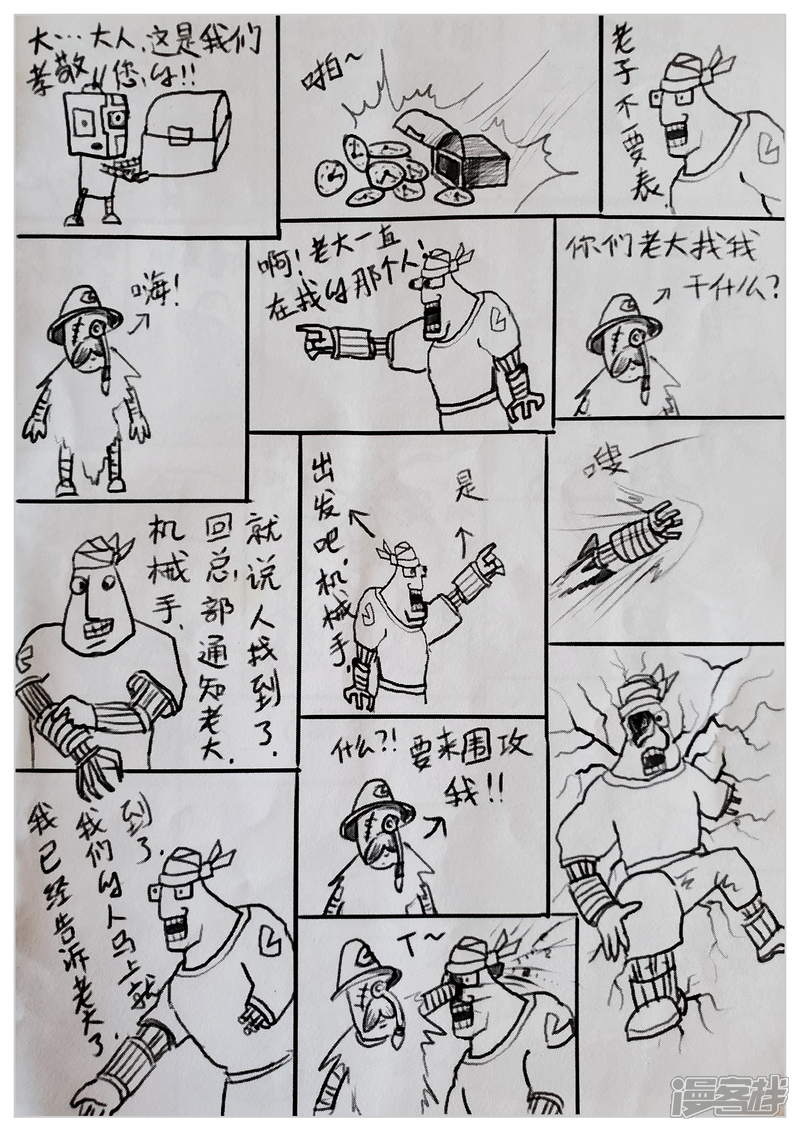 大…大人,这是我们
孝敬您的!!
啪~
老子不要表.
嗨!
啊!老大一直
在找的那个人!
你们老大找我
干什么?
就说人找到了.
回总部通知老大.
机械手.
是
出发吧.机械手.
嗖—
到了.
我们的人马上就
我已经告诉老大了.
什么?!要来围攻
我!!
T~
漫客栈